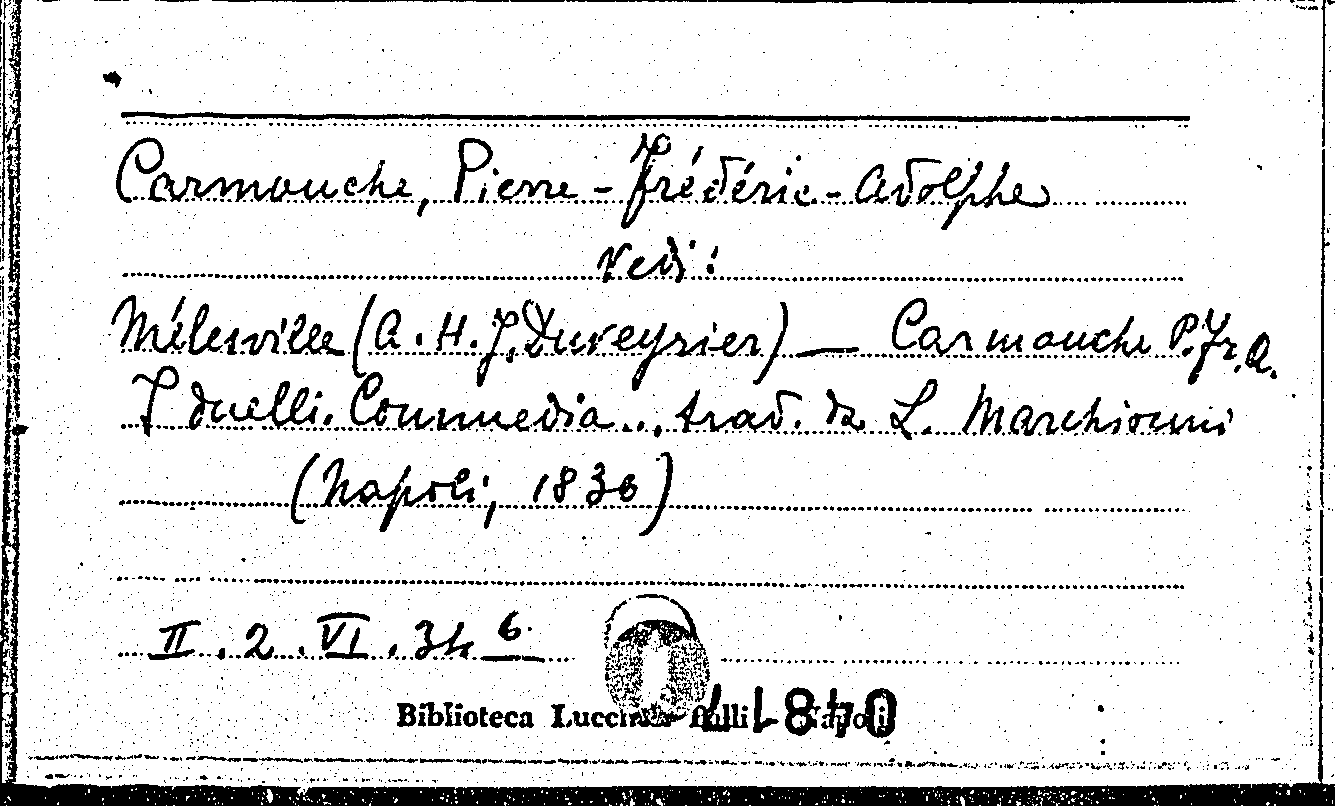 Carmouche, Pierre-Frédéric-Adolphe
Vedi:
Mélesville (A.H.J. Duveyrier) — Carmouche P.Fr.A.
I duelli. Commedia..., trad. da L. Marchionni
(Napoli, 1836)
II.2.VI.34 6.
Biblioteca Lucchesi-Palli - Napoli
04817